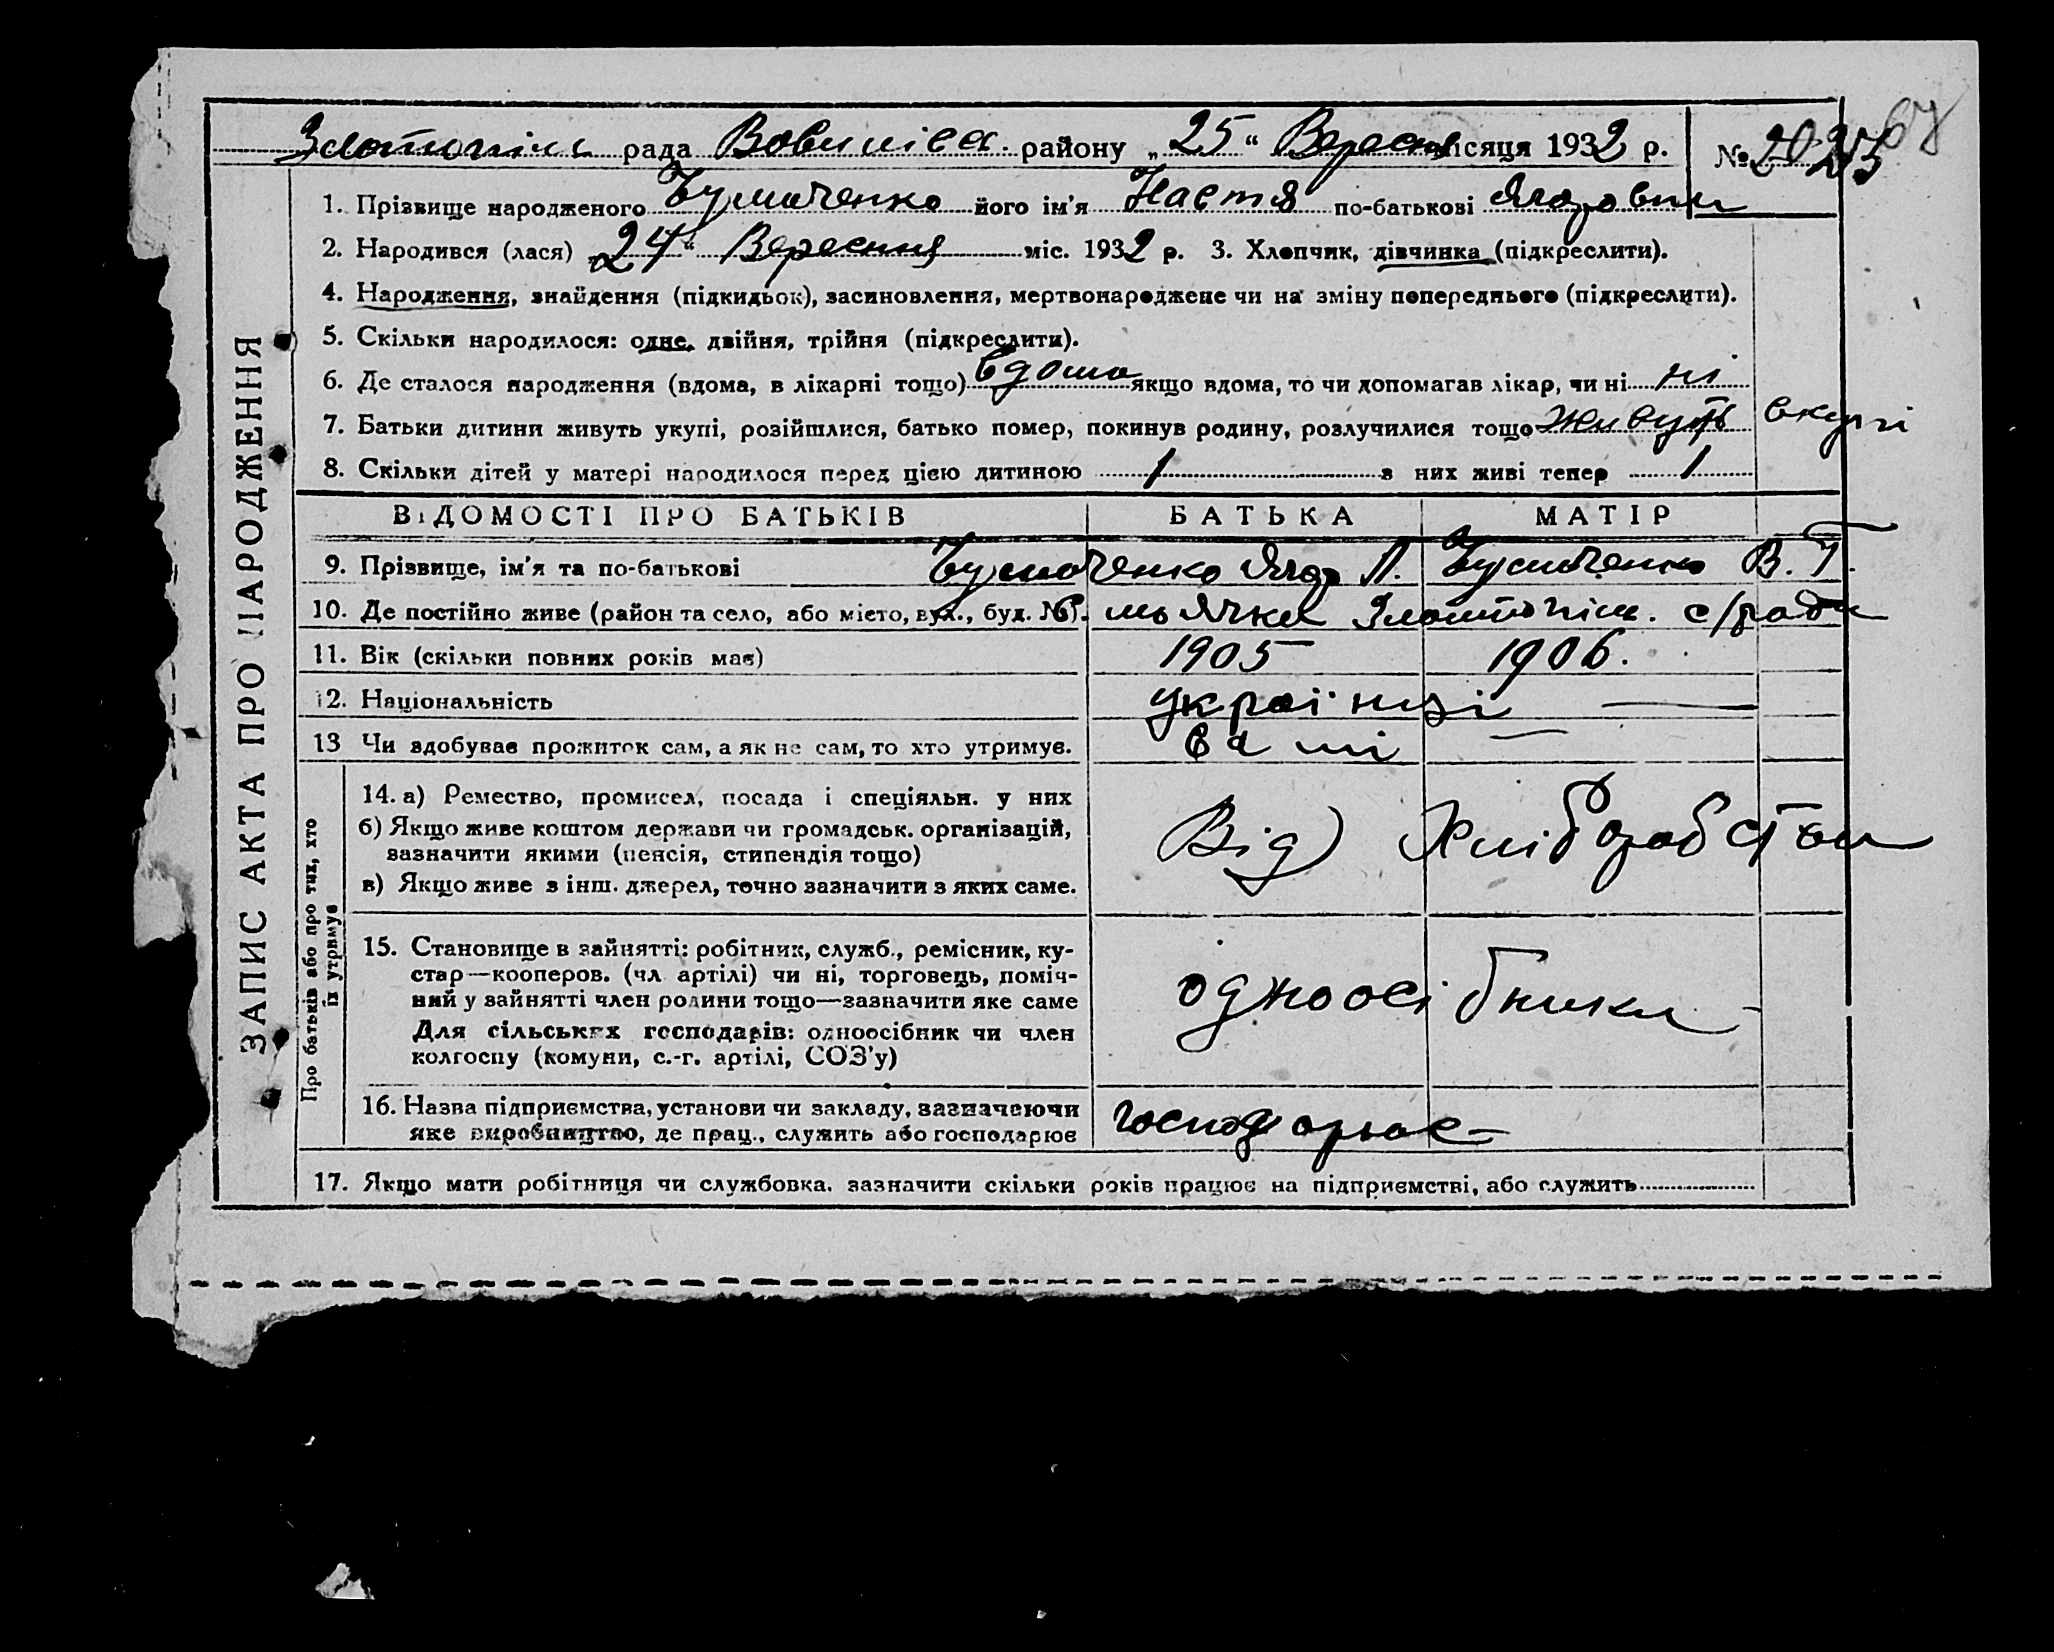 67
Златопіль рада района „25“ Вересня місяця 1932 р. №
1. Прізвище народженого його ім'я Настя по-батькові
2. Народився (лася) „24“ Вересня міс. 1932 р. 3. Хлопчик, дівчинка (підкреслити).
4. Народження, знайдення (підкидьок), засиновлення, мертвонароджене чи на зміну попереднього (підкреслити).
5. Скільки народилося: одне, двійня, трійня (підкреслити).
6. Де сталося народження (вдома, в лікарні тощо) вдома якщо вдома, то чи допомагав лікар, чи ні ні
7. Батьки дитини живуть укупі, розійшлися, батько помер, покинув родину, розлучилися тощо живуть вкупі
8. Скільки дітей у матері народилося перед цією дитиною 1 з них живі тепер 1
ЗАПИС АКТА ПРО НАРОДЖЕННЯ
ВІДОМОСТІ ПРО БАТЬКІВ БАТЬКА МАТІР
9. Прізвище, ім'я та по-батькові
10. Де постійно живе (район та село, або місто, вул., буд. №). с/ради
11. Вік (скільки повних років має) 1905 1906.
12. Національність українці —
13 Чи здобуває прожиток сам, а як не сам, то хто утримує. самі —
Про батьків або про тих, хто
їх утримує
14. а) Ремество, промисел, посада і спеціяльн. у них
б) Якщо живе коштом держави чи громадськ. організацій,
зазначити якими (пенсія, стипендія тощо)
в) Якщо живе з інш. джерел, точно зазначити з яких саме.
Від Хліборобства
15. Становище в зайнятті: робітник, служб., ремісник, ку-
стар—кооперов. (чл артілі) чи ні, торговець, поміч-
ний у зайнятті член родини тощо—зазначити яке саме
Для сільських господарів: одноосібник чи член
колгоспу (комуни, с.-г. артілі, СОЗ'у)
одноосібники
16. Назва підприємства, установи чи закладу, зазначаючи
яке виробництво, де прац., служить або господарює
господарює
17. Якщо мати робітниця чи службовка, зазначити скільки років працює на підприємстві, або служить